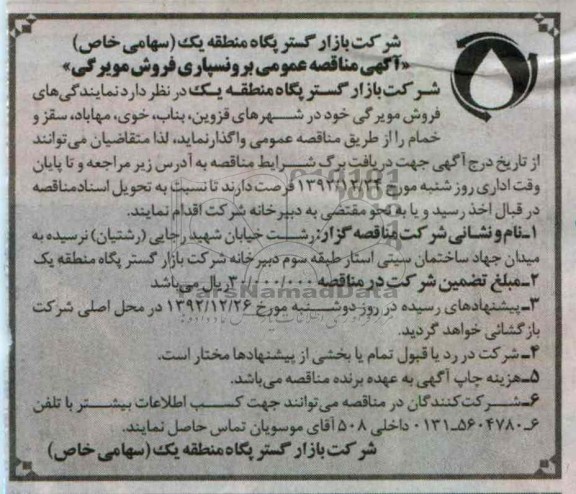 شرکت بازار گستر پگاه منطقه یک (سهامی خاص)
«آگهی مناقصه عمومی برونسپاری فروش مویرگی»
شرکت بازار گستر پگاه منطقه یک در نظر دارد نمایندگی‌های
فروش مویرگی خود در شهرهای قزوین، بناب، خوی، مهاباد، سقز و
خمام را از طریق مناقصه عمومی واگذار نماید، لذا متقاضیان می‌توانند
از تاریخ درج آگهی جهت دریافت برگ شرایط مناقصه به آدرس زیر مراجعه و تا پایان
وقت اداری روز شنبه مورخ ۱۳۹۲/۱۲/۲۴ فرصت دارند تا نسبت به تحویل اسناد مناقصه
در قبال اخذ رسید و یا به نحو مقتضی به دبیرخانه شرکت اقدام نمایند.
۱ـ نام و نشانی شرکت مناقصه گزار: رشت خیابان شهید رجایی (رشتیان) نرسیده به
میدان جهاد ساختمان سیتی استار طبقه سوم دبیرخانه شرکت بازار گستر پگاه منطقه یک
۲ـ مبلغ تضمین شرکت در مناقصه ریال می‌باشد
ParsNamadData
۳ـ پیشنهادهای رسیده در روز دوشنبه مورخ ۱۳۹۲/۱۲/۲۶ در محل اصلی شرکت
بازگشائی خواهد گردید.
۴ـ شرکت در رد یا قبول تمام یا بخشی از پیشنهادها مختار است.
۵ـ هزینه چاپ آگهی به عهده برنده مناقصه می‌باشد.
۶ـ شرکت‌کنندگان در مناقصه می‌توانند جهت کسب اطلاعات بیشتر با تلفن
۶ـ۰۱۳۱ـ۵۶۰۴۷۸۰ داخلی ۵۰۸ آقای موسویان تماس حاصل نمایند.
شرکت بازار گستر پگاه منطقه یک (سهامی خاص)